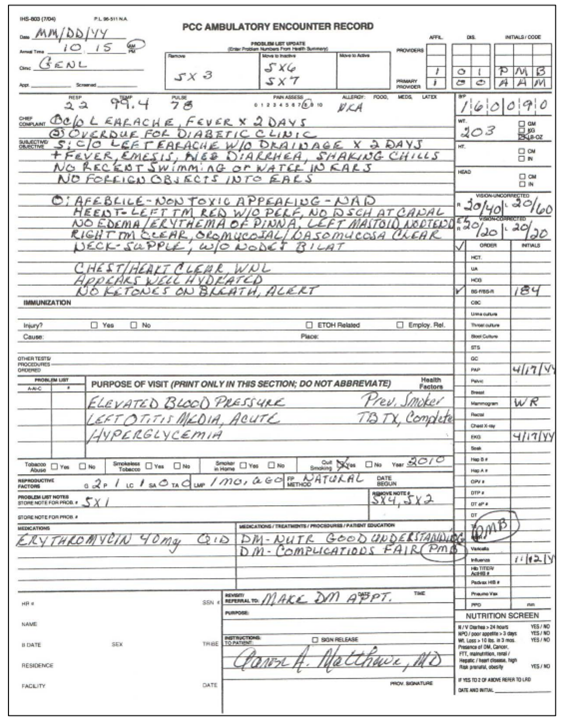 IHS-803 (7/04) P.L. 96-511 N.A.
PCC AMBULATORY ENCOUNTER RECORD
Date MM/DD/YY
Arrival Time 10 15 PM
Clinic GENL
Appt. Screened
PROBLEM LIST UPDATE
(Enter Problem Numbers From Health Summary)
Remove Move to Inactive Move to Active
5X3 5X6
5X7
PROVIDERS AFFIL. DIS. INITIALS/CODE
1 01 PMB
PRIMARY PROVIDER 1 00 AAM
RESP 22 TEMP 99.4 PULSE 78 PAIN ASSESS 0 1 2 3 4 5 6 7 8 9 10 ALLERGY: FOOD, MEDS, LATEX NKA
B/P 160090
CHIEF COMPLAINT ① C/O L EARACHE, FEVER X 2 DAYS
② OVERDUE FOR DIABETIC CLINIC
WT. 203 GM KG LB-OZ
SUBJECTIVE/ OBJECTIVE S: C/O LEFT EARACHE W/O DRAINAGE X 2 DAYS
+ FEVER, EMESIS, NEG DIARRHEA, SHAKING CHILLS
NO RECENT SWIMMING OR WATER IN EARS
NO FOREIGN OBJECTS INTO EARS
HT. CM IN
HEAD CM IN
O: AFEBRILE-NON TOXIC APPEARING-NAD
HEENT-LEFT TM RED W/O PERF, NO DSCH AT CANAL
NO EDEMA/ERYTHEMA OF PINNA, LEFT MASTOID NODTEND
RIGHT TM CLEAR, OROMUCOSAL/DASOMUCOSA CLEAR
NECK-SUPPLE, W/O NODES BILAT
VISION-UNCORRECTED
R 20/40 L 20/60
VISION-CORRECTED
R 20/20 L 20/20
CHEST/HEART CLEAR, WNL
APPEARS WELL HYDRATED
NO KETONES ON BREATH, ALERT
✓ ORDER INITIALS
HCT.
UA
HCG
✓ BS-FBS-R 184
CBC
Urine culture
Throat culture
Stool Culture
STS
GC
PAP 4/17/YY
Pelvic
Breast
Mammogram WR
Rectal
Chest X-ray
EKG 4/17/YY
Hep B #
Hep A #
OPV #
DTP #
DT
PMB
Varicella
Influenza 11/12/Y
Pneumo Vax
PPD mm
IMMUNIZATION
Injury? Yes No ETOH Related Employ. Rel.
Cause: Place:
OTHER TESTS/ PROCEDURES ORDERED
PROBLEM LIST
A-N-C #
PURPOSE OF VISIT (PRINT ONLY IN THIS SECTION; DO NOT ABBREVIATE) Health Factors
ELEVATED BLOOD PRESSURE Prev. Smoker
LEFT OTITIS MEDIA, ACUTE TB TX, Complete
HYPERGLYCEMIA
Tobacco Abuse Yes No Smokeless Tobacco Yes No Smoker in Home Yes No Quit Smoking X Yes No Year 2010
REPRODUCTIVE FACTORS G 2 P 1 LC 1 SA 0 TA 0 LMP 1 mo. ago FP METHOD NATURAL DATE BEGUN
PROBLEM LIST NOTES
STORE NOTE FOR PROB. # 5X1 REMOVE NOTE # 5X4, 5X2
STORE NOTE FOR PROB. #
MEDICATIONS MEDICATIONS / TREATMENTS / PROCEDURES / PATIENT EDUCATION
ERYTHROMYCIN 40mg QID DM-NUTR GOOD UNDERSTANDING
DM-COMPLICATIONS FAIR PMB
HR # SSN #
REVISIT/ REFERRAL TO: MAKE DM APPT. DATE TIME
PURPOSE:
NAME
B DATE SEX TRIBE
INSTRUCTIONS TO PATIENT: SIGN RELEASE
RESIDENCE
FACILITY DATE PROV. SIGNATURE
A. Matthews, MD
NUTRITION SCREEN
N / V Diarrhea > 24 hours YES / NO
NPO / poor appetite > 3 days YES / NO
Wt. Loss > 10 lbs in 3 mos. YES / NO
Presence of DM, Cancer,
FTT, malnutrition, renal /
Hepatic / heart disease, high
Risk prenatal, obesity YES / NO
IF YES TO 2 OF ABOVE REFER TO LRD
DATE AND INITIAL